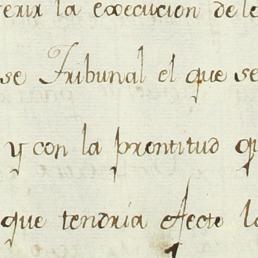 la execucion de
se Tribunal el que se
y con la prontitud
que tendria efecto